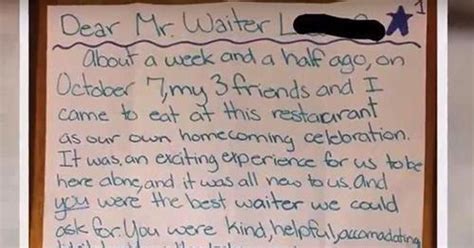 1
Dear Mr. Waiter L
About a week and a half ago, on
October 7, my 3 friends and I
came to eat at this restaurant
as our own homecoming celebration.
It was, an exciting experience for us to be
here alone, and it was all new to us. And
you were the best waiter we could
ask for. You were kind, helpful, accomadating